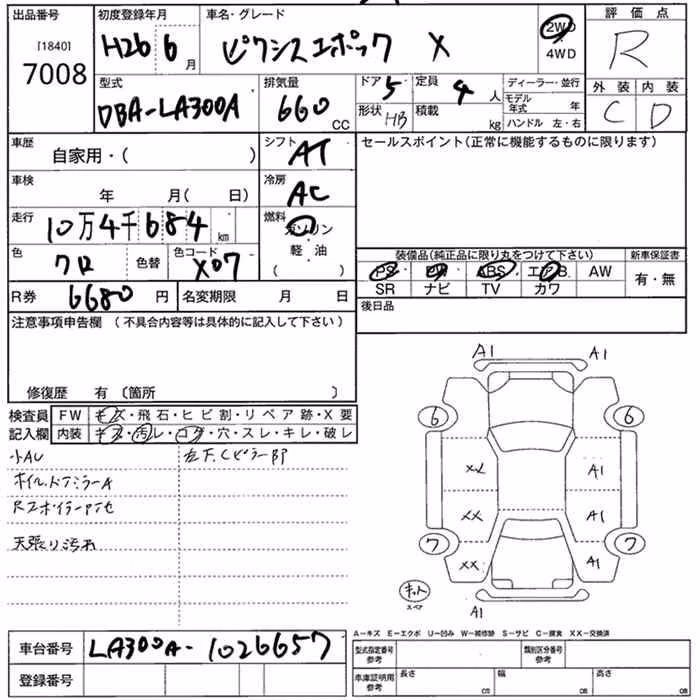 出品番号
[1840]
7008
初度登録年月
H26 6月
車名・グレード
ピクシスエポック X
2WD
・
4WD
評価点
R
外装 内装
C D
型式
DBA-LA300A
排気量
660 CC
ドア 5
形状 HB
定員 4 人
積載 kg
ディーラー・並行
モデル年式 年
ハンドル 左・右
車歴
自家用・( )
シフト
AT
セールスポイント(正常に機能するものに限ります)
車検
年 月( 日)
冷房
AC
走行
10万4千684 km
燃料
ガソリン
軽・油
( )
色
クロ
色替
色コード
X07
装備品(純正品に限り丸をつけて下さい)
PS PW ABS エアB AW
SR ナビ TV カワ
新車保証書
有・無
R券 6680 円
名変期限 月 日
後日品
注意事項申告欄(不具合内容等は具体的に記入して下さい)
修復歴 有(箇所 )
検査員
記入欄
FW キズ・飛石・ヒビ割・リペア跡・X要
内装 キズ・汚レ・コゲ・穴・スレ・キレ・破レ
小AU
左下.Cピラー部
ホイル.ドアミラーA
Rスポイラー
天張り汚れ
A1 A1
6 6
XX A1
XX A1
7 7
XX A1
キット
スペア
A1
A-キズ E-エクボ U-凹み W-補修跡 S-サビ C-腐食 XX-交換済
車台番号 LA300A-1026657
登録番号
型式指定番号
参考
類別区分番号
参考
車庫証明用
参考
長さ cm
幅 cm
高さ cm